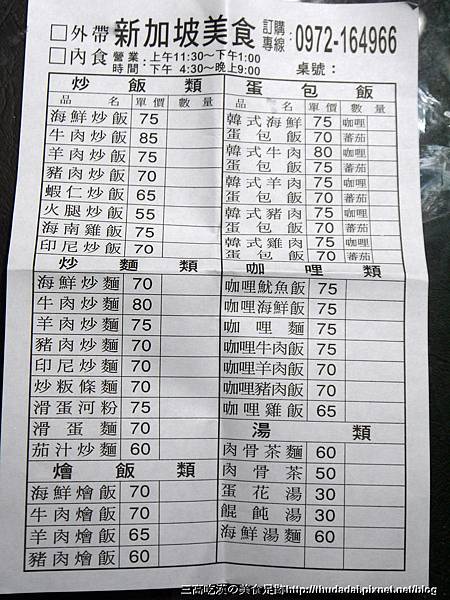 □外帶 新加坡美食 訂購專線:0972-164966
□內食 營業時間:上午11:30~下午1:00 下午 4:30~晚上9:00 桌號:
炒飯類
品名 單價 數量
海鮮炒飯 75
牛肉炒飯 85
羊肉炒飯 75
豬肉炒飯 70
蝦仁炒飯 65
火腿炒飯 55
海南雞飯 75
印尼炒飯 70
炒麵類
海鮮炒麵 70
牛肉炒麵 80
羊肉炒麵 75
豬肉炒麵 70
印尼炒麵 70
炒粄條麵 70
滑蛋河粉 75
滑蛋麵 70
茄汁炒麵 60
燴飯類
海鮮燴飯 70
牛肉燴飯 70
羊肉燴飯 65
豬肉燴飯 60
蛋包飯
品名 單價 數量
韓式海鮮 75 咖哩
蛋包飯 70 蕃茄
韓式牛肉 80 咖哩
蛋包飯 75 蕃茄
韓式羊肉 75 咖哩
蛋包飯 70 蕃茄
韓式豬肉 75 咖哩
蛋包飯 70 蕃茄
韓式雞肉 75 咖哩
蛋包飯 70 蕃茄
咖哩類
咖哩魷魚飯 75
咖哩海鮮飯 75
咖哩麵 75
咖哩牛肉飯 75
咖哩羊肉飯 70
咖哩豬肉飯 70
咖哩雞飯 65
湯類
肉骨茶麵 60
肉骨茶 50
蛋花湯 30
餛飩湯 30
海鮮湯麵 60
三高吃漢の美食足跡http://thudadai.pixnet.net/blog